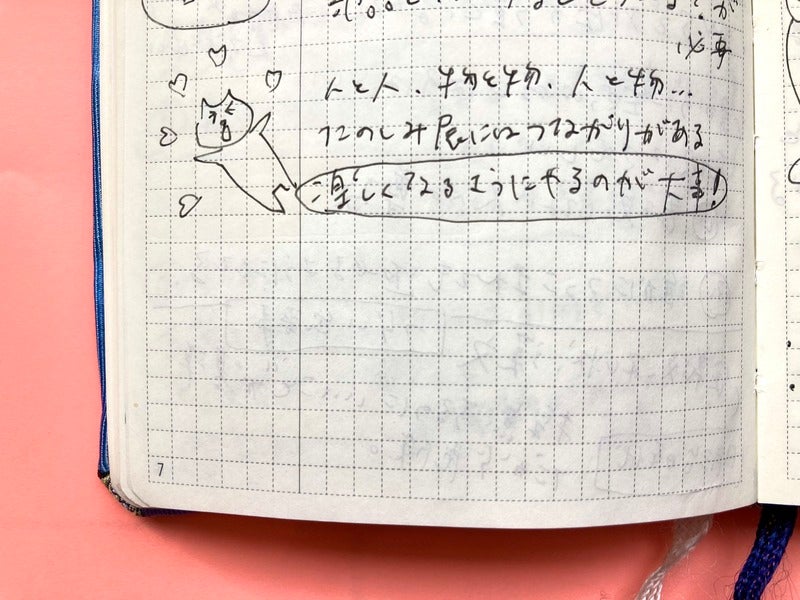 必要
人と人、物と物、人と物…
たのしみ展にはつながりがある
楽しくなるようにやるのが大事!
7